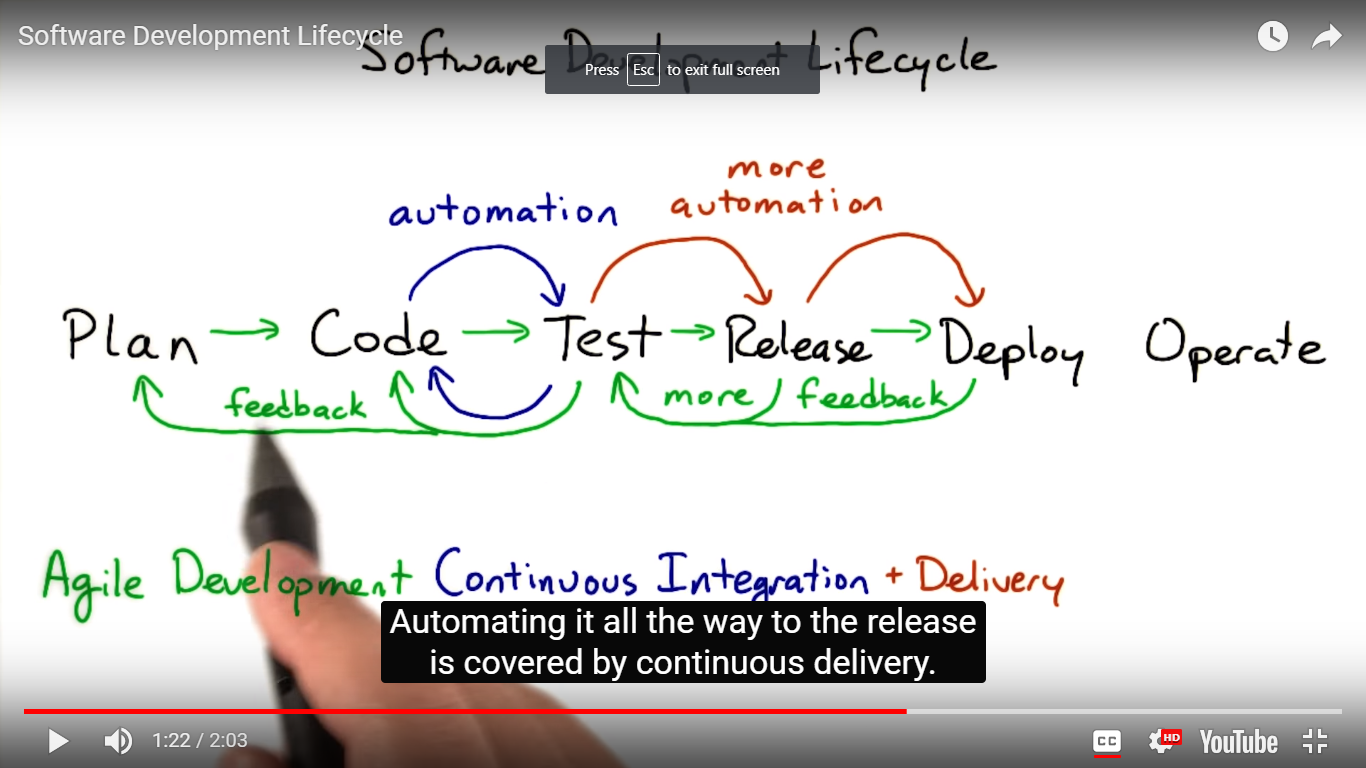 Software Development Lifecycle
Software Development Lifecycle
Press Esc to exit full screen
more
automation
automation
Plan → Code → Test → Release → Deploy Operate
feedback more feedback
Agile Development Continuous Integration + Delivery
Automating it all the way to the release
is covered by continuous delivery.
1:22 / 2:03
CC HD YouTube